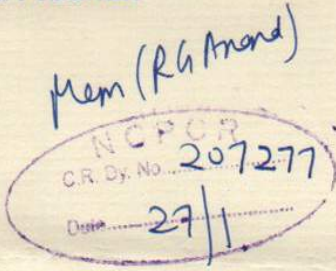 Mem (RG Anand)
NCPCR
C.R. Dy. No. 207277
Date 27/1